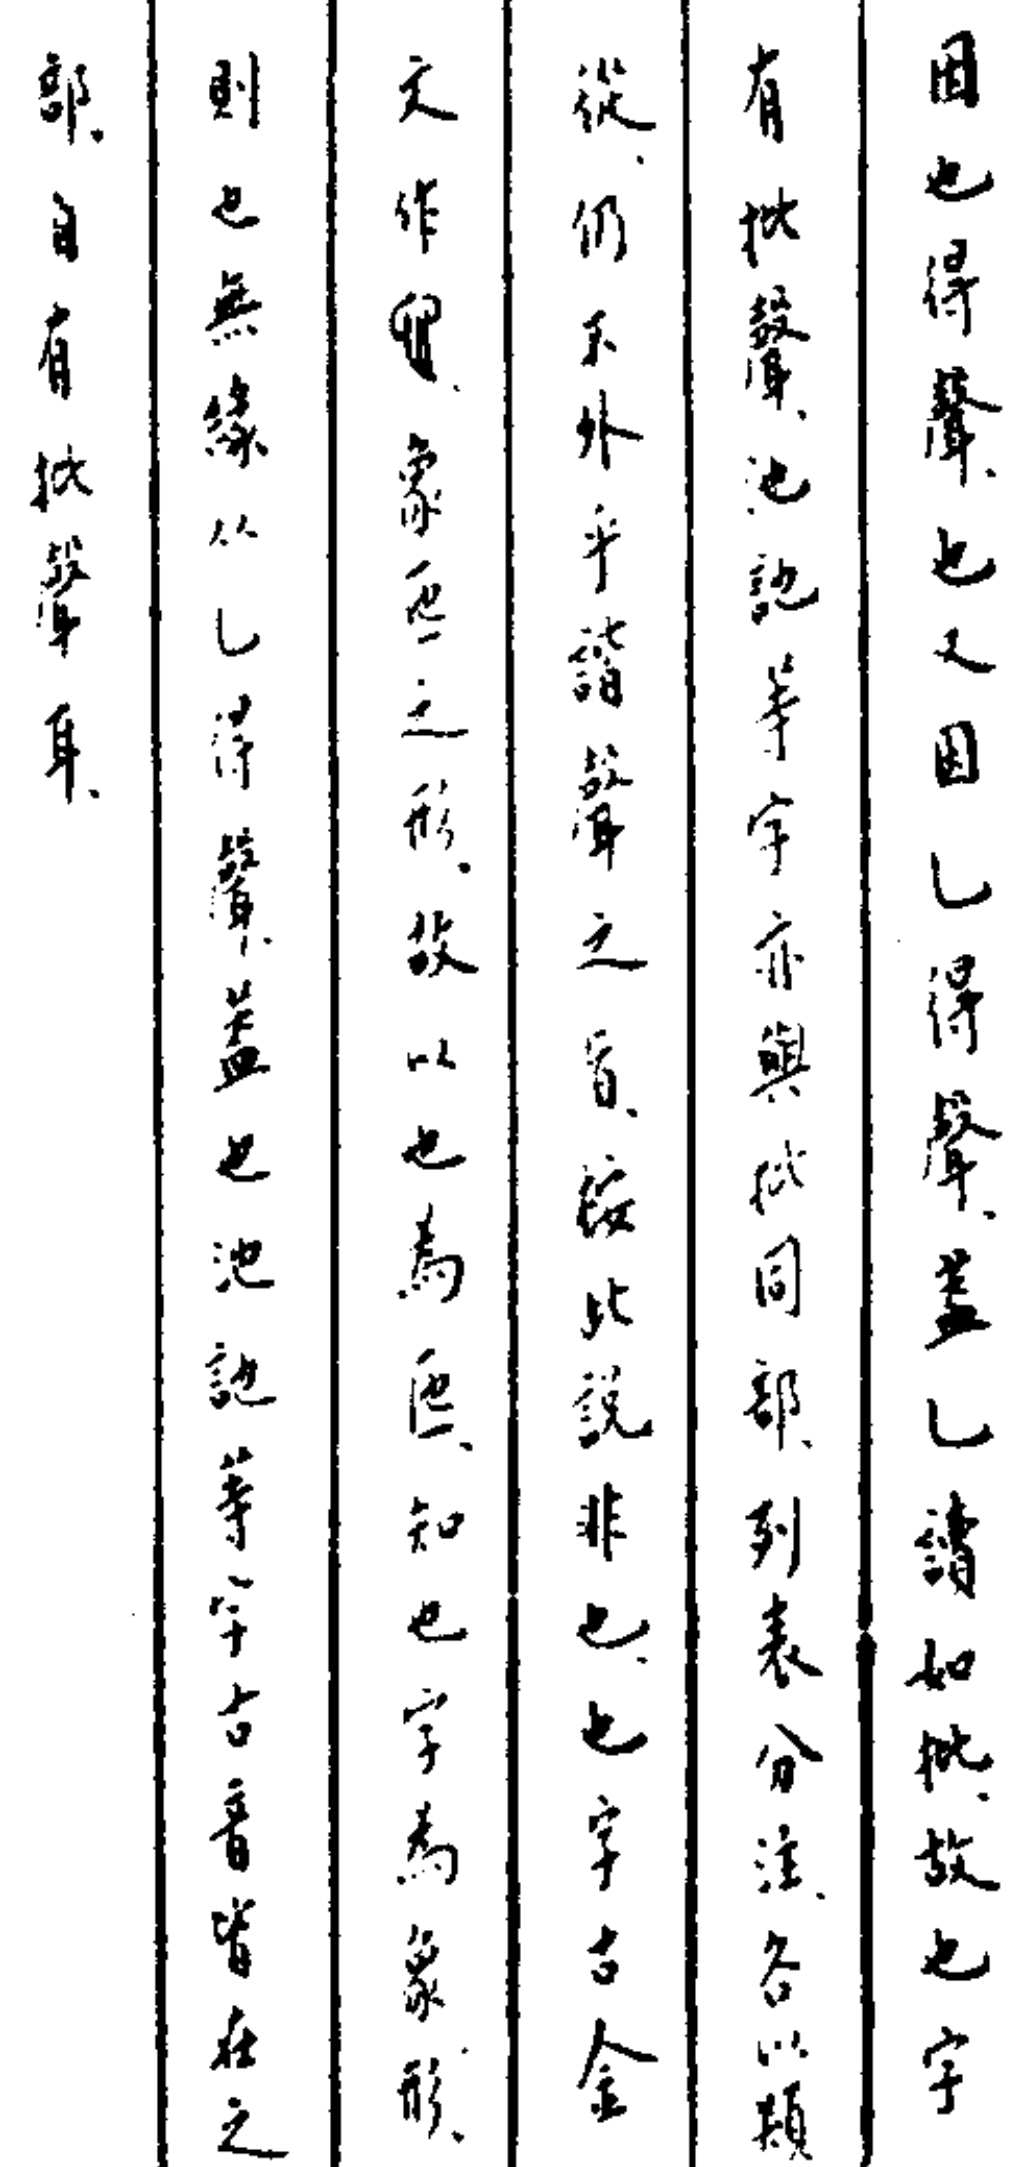 因也得聲、也又因乚得聲、蓋乚讀如批、故也字
有批聲、池訑等字亦與批同部、列表分注、各以類
從、仍不外乎諧聲之旨、按此說非也、也字古金
文作、象匜之形。故以也為匜、知也字為象形、
則也無緣从乚得聲、蓋也池訑等字古音皆在之
部、自有批聲耳、